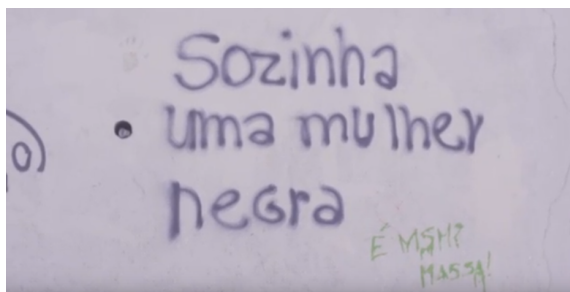 Sozinha
uma mulher
negra
É MSM?
MASSA!